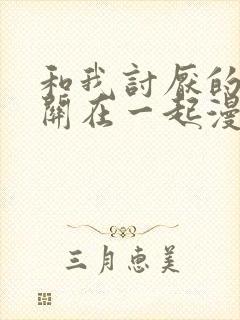 和我討厭的
關在一起漫
三月惠美